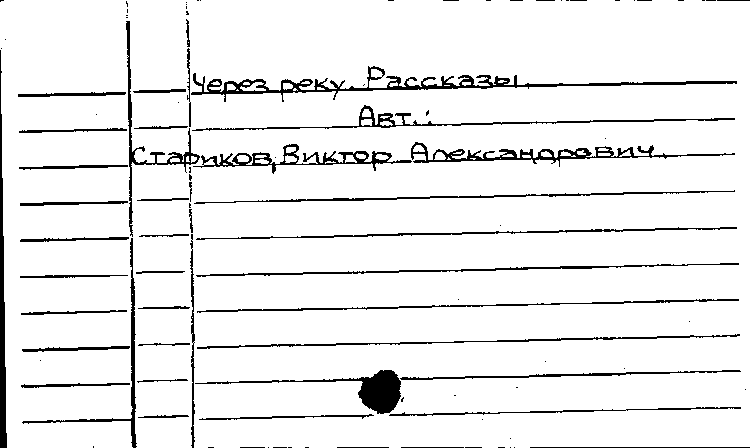 Через реку. Рассказы.
Авт.:
Стариков, Виктор Александрович.